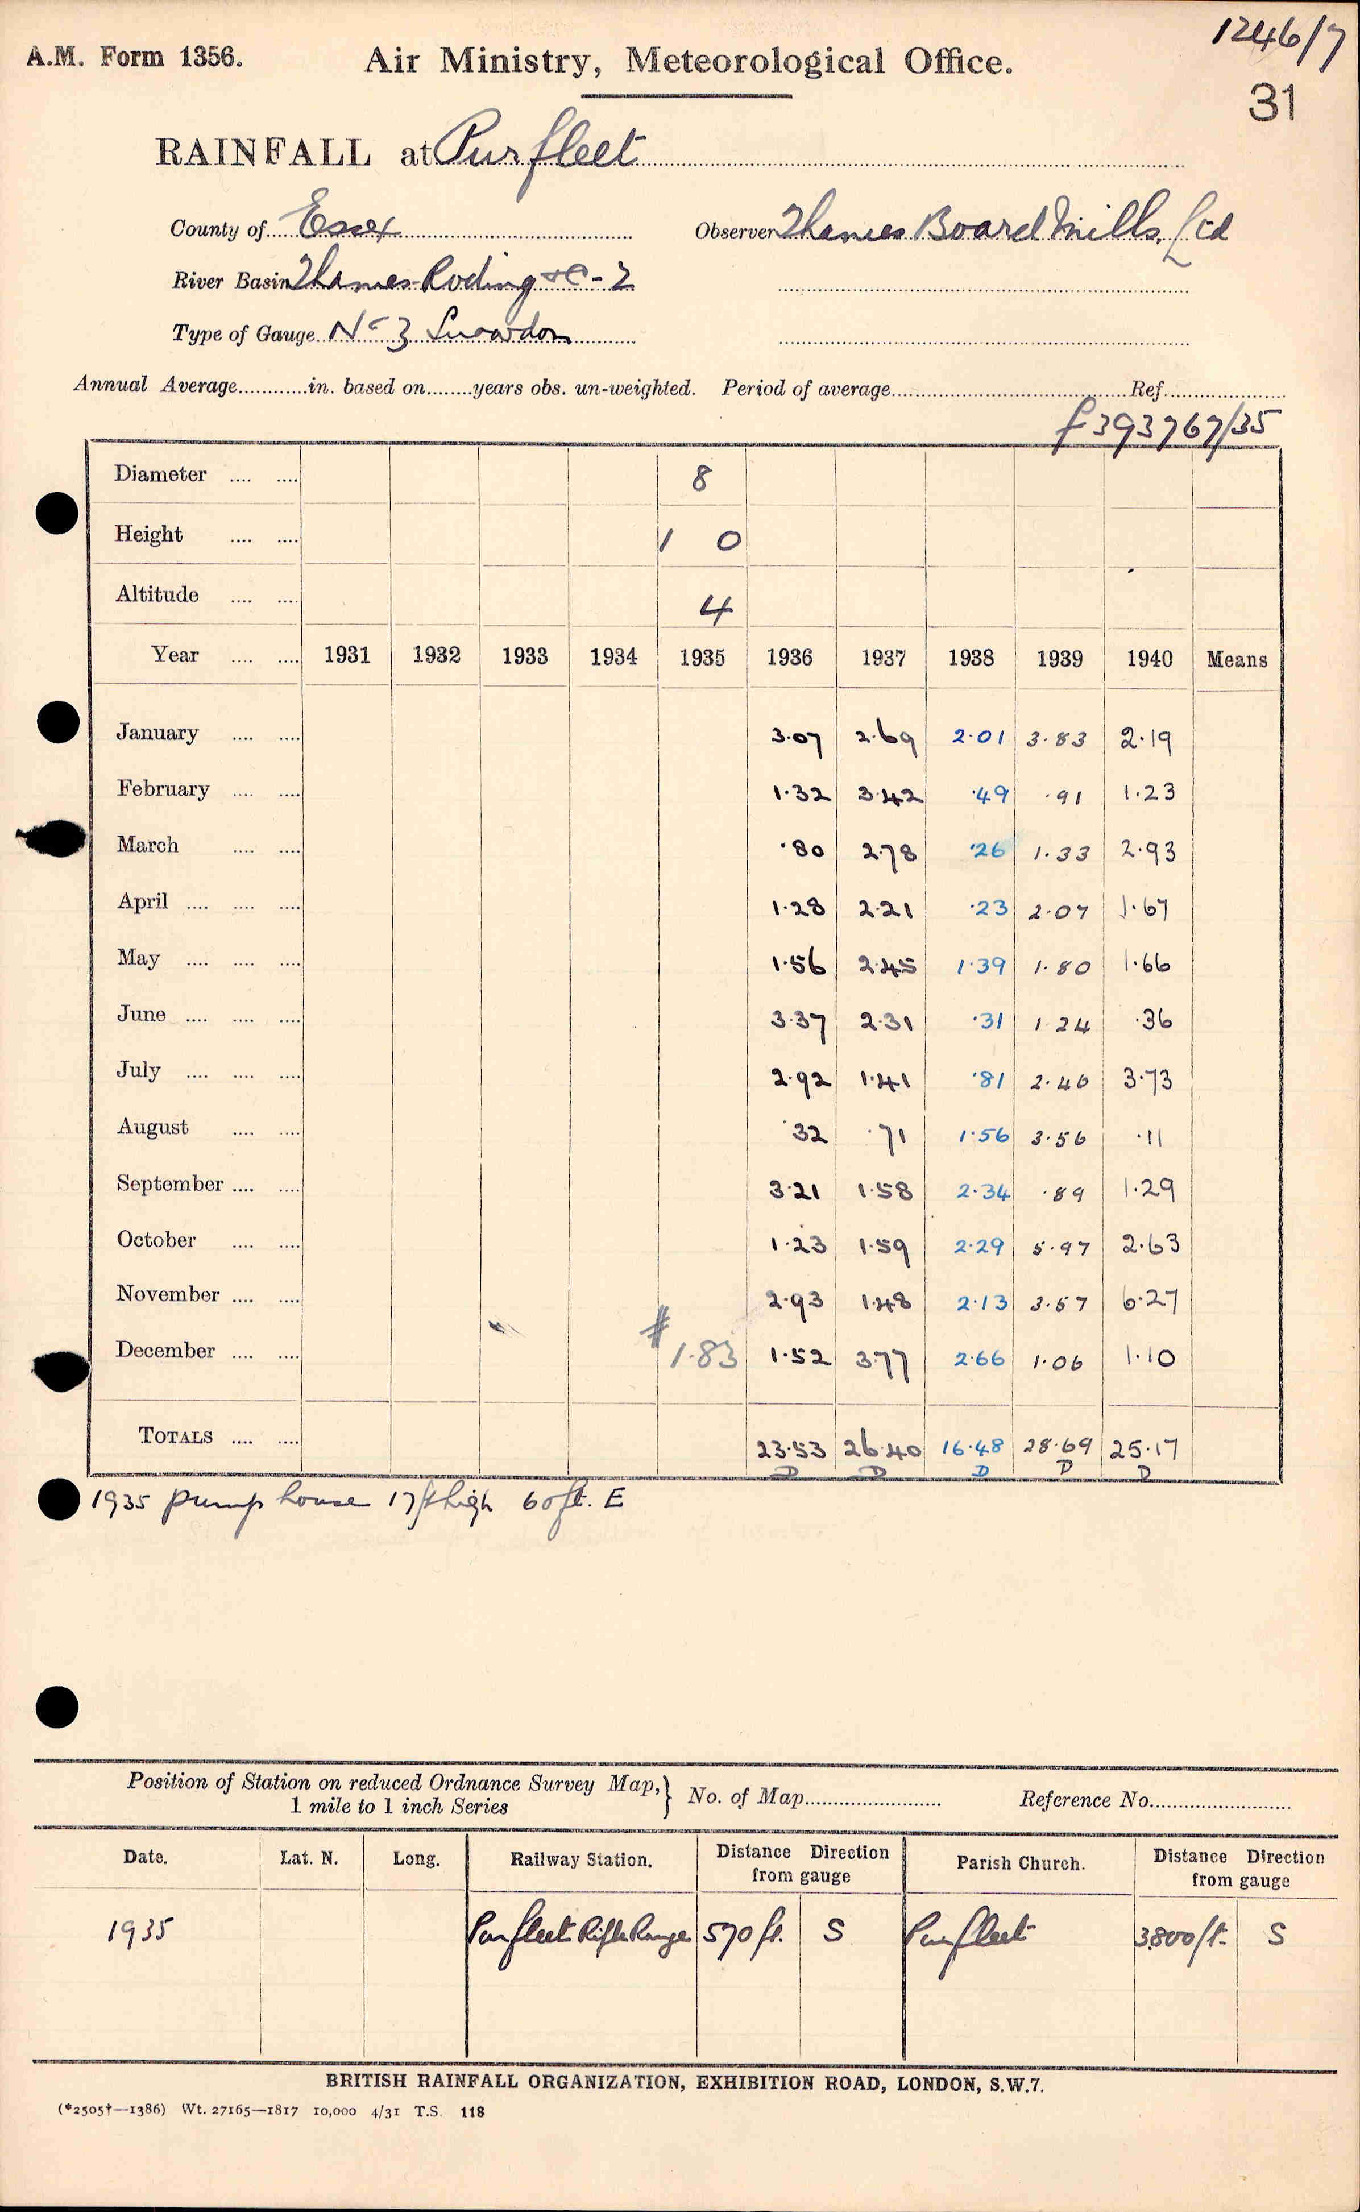 1246/7
A.M. Form 1356. Air Ministry, Meteorological Office.
31
RAINFALL at Purfleet
County of Essex Observer Thames Board Mills, Ltd
River Basin Thames-Roding &c - 2
Type of Gauge No 3 Snowdon
Annual Average............in. based on........years obs. un-weighted. Period of average........................ Ref.................
f 393767/35
Diameter .... .... 8
Height .... .... 1 0
Altitude .... .... 4
Year .... .... 1931 1932 1933 1934 1935 1936 1937 1938 1939 1940 Means
January .... .... 3.07 2.69 2.01 3.83 2.19
February .... .... 1.32 3.42 .49 .91 1.23
March .... .... .80 2.78 .26 1.33 2.93
April .... .... .... 1.28 2.21 .23 2.07 1.67
May .... .... .... 1.56 2.45 1.39 1.80 1.66
June .... .... .... 3.37 2.31 .31 1 24 .36
July .... .... .... 2.92 1.41 .81 2.46 3.73
August .... .... .32 .71 1.56 3.56 .11
September .... .... 3.21 1.58 2.34 .89 1.29
October .... .... 1.23 1.59 2.29 5.97 2.63
November .... .... 2.93 1.48 2.13 3.57 6.27
December .... .... # 1.83 1.52 3.77 2.66 1.06 1.10
TOTALS .... .... 23.53 26.40 16.48 28.69 25.17
D D D D D
1935 pump house 17ft high 60ft. E
Position of Station on reduced Ordnance Survey Map,} No. of Map........................ Reference No........................
1 mile to 1 inch Series
Date. Lat. N. Long. Railway Station. Distance Direction from gauge Parish Church. Distance Direction from gauge
1935 Purfleet Rifle Range 570 ft. S Purfleet 3,800 ft. S
BRITISH RAINFALL ORGANIZATION, EXHIBITION ROAD, LONDON, S.W.7.
(*2505†—1386) Wt. 27165—1817 10,000 4/31 T.S. 118